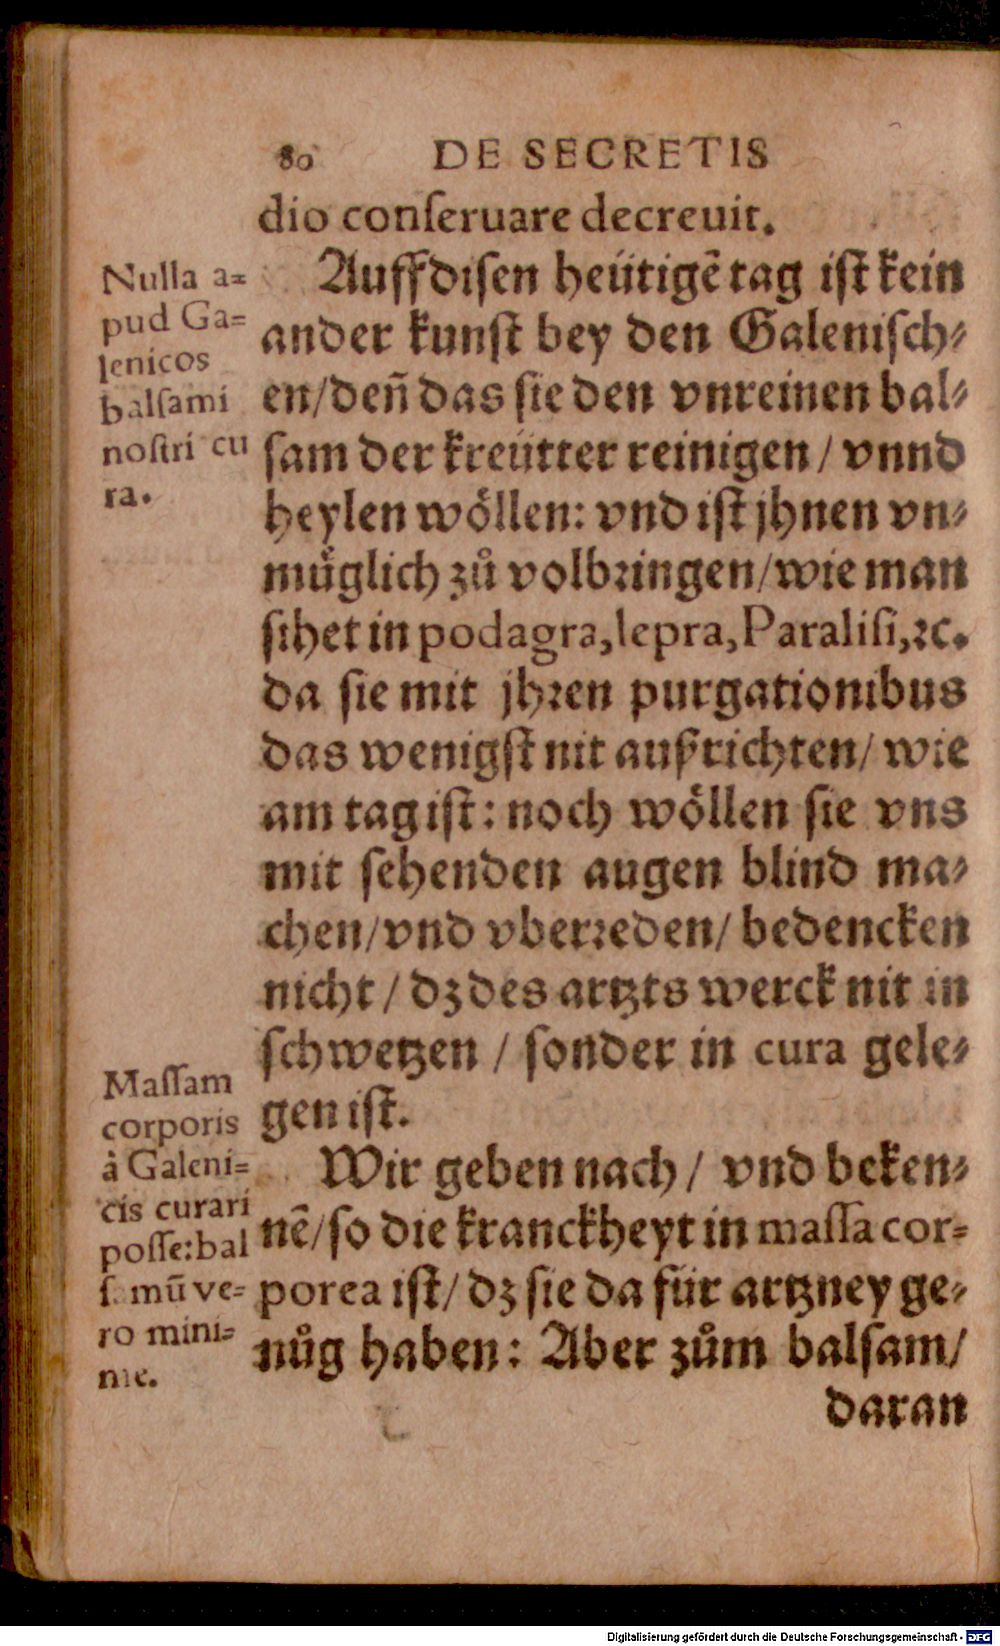 80 DE SECRETIS
dio conſeruare decreuit.
Nulla a=
pud Ga=
lenicos
balſami
noſtri cu
ra.
Auff diſen heütigē tag iſt kein
ander kunſt bey den Galeniſch⸗
en/ deñ das ſie den vnreinen bal⸗
ſam der kreütter reinigen / vnnd
heylen woͤllen: vnd iſt jhnen vn⸗
muͤglich zů volbꝛingen/ wie man
ſihet in podagra, lepra, Paraliſi, ꝛc.
da ſie mit jhꝛen purgationibus
das wenigſt nit außrichten/ wie
am tag iſt: noch woͤllen ſie vns
mit ſehenden augen blind ma⸗
chen/ vnd vberꝛeden/ bedencken
nicht / dz des artzts werck nit in
ſchwetzen / ſonder in cura gele⸗
gen iſt.
Maſſam
corporis
à Galeni=
cis curari
poſſe: bal
ſamū ve=
ro mini=
me.
Wir geben nach / vnd beken⸗
nē/ ſo die kranckheyt in maſſa cor=
porea iſt/ dz ſie da für artzney ge⸗
nůg haben: Aber zům balſam/
daran
Digitalisierung gefördert durch die Deutsche Forschungsgemeinschaft - DFG